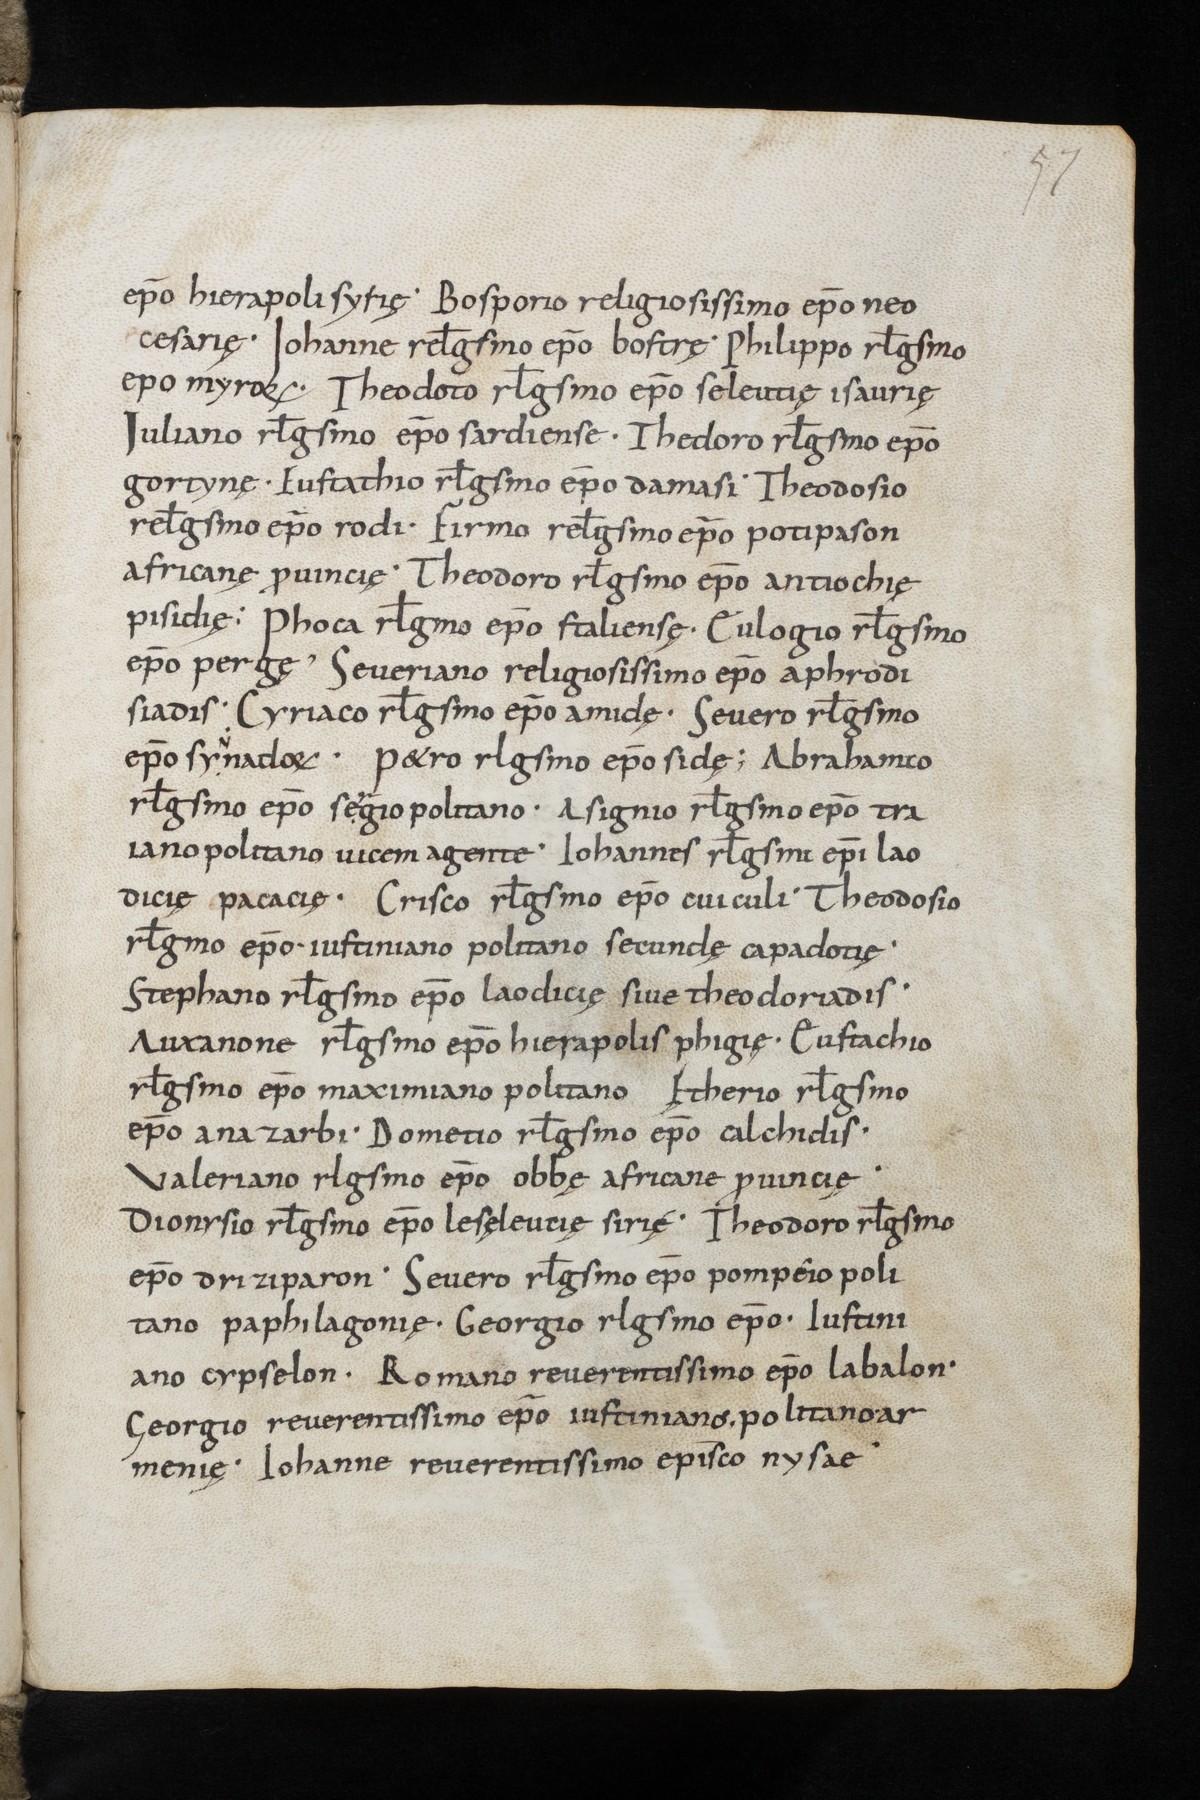 57
ep̄o hierapoli syrię· Bosporio religiosissimo ep̄o neo
cesarię· Johanne rel̄gsmo ep̄o bostrę· Philippo rl̄gsmo
epo myroꝝ· Theodoto rl̄gsmo ep̄o seleutię isaurię
Juliano rl̄gsmo ep̄o sardiense· Thedoro rl̄gsmo ep̄o
gortynę· Eustathio rl̄gsmo ep̄o damasi· Theodosio
rel̄gsmo ep̄o rodi· Firmo rel̄gsmo ep̄o potipason
africanę ꝓuincię· Theodoro rl̄gsmo ep̄o antiochię
pisidię; Phoca rl̄gmo ep̄o staliensę· Eulogio rl̄gsmo
ep̄o pergę, Severiano religiosissimo ep̄o aphrodi
siadis· Cyriaco rl̄gsmo ep̄o amidę· Severo rl̄gsmo
ep̄o synadoꝝ· P&ro rlgsmo ep̄o sidę; Abrahamio
rl̄gsmo ep̄o sergiopolitano· Asignio rl̄gsmo ep̄o tra
ianopolitano uicem agente· Iohannes rl̄gsmi ep̄i lao
dicię pacacię· Crisco rl̄gsmo ep̄o cuiculi· Theodosio
rl̄gmo ep̄o· iustiniano politano secundę capadotię·
Stephano rl̄gsmo ep̄o laodicię siue theodoriadis·
Auxanone rl̄gsmo ep̄o hierapolis phigię· Eustachio
rl̄gsmo ep̄o maximiano politano Etherio rl̄gsmo
ep̄o anazarbi· Dometio rl̄gsmo ep̄o calchidis·
Valeriano rlgsmo ep̄o obbę africane ꝓuincię·
Dionysio rl̄gsmo ep̄o leseleutię sirię· Theodoro rl̄gsmo
ep̄o driziparon· Severo rl̄gsmo ep̄o pompeio poli
tano paphilagonię· Georgio rlgsmo ep̄o· Iustini
ano cypselon· Romano reuerentissimo ep̄o labalon·
Georgio reuerentissimo ep̄o iustiniano politano ar
menię· Iohanne reuerentissimo episco nysae·